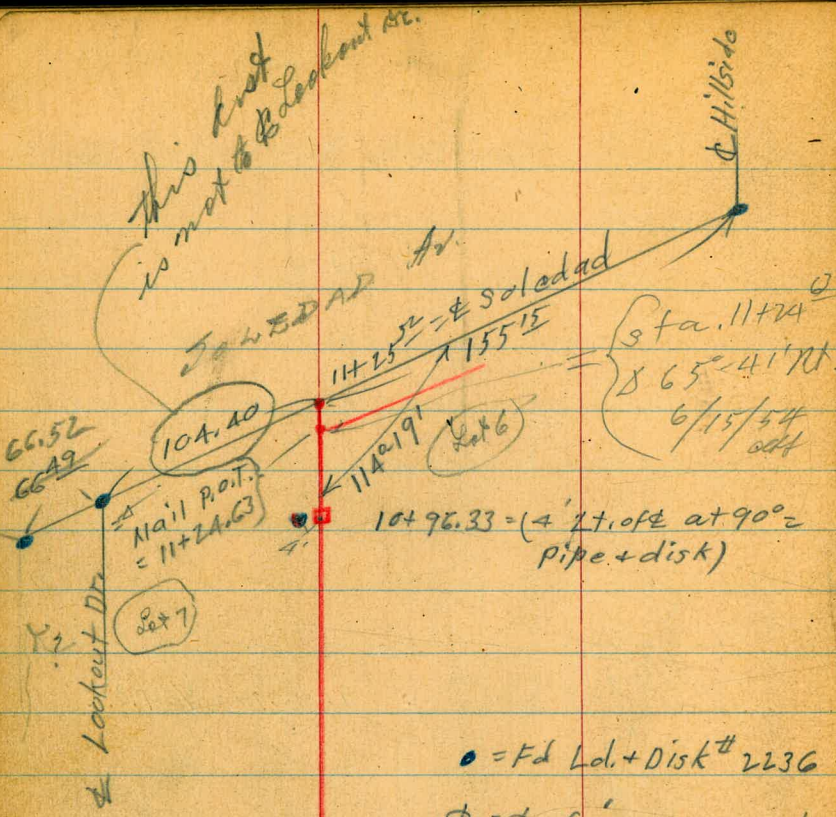 this dist
is not to ℄ Lookout Dr.
℄ Hillside
SOLEDAD Av.
11+25⁵² = ℄ Soledad
155¹⁵
= Sta. 11+24
∆ 65°-41' Rt.
6/15/54
104.40
66.52
66⁴⁹
114°19'
Lot 6
Nail P.O.T.
= 11+24.63
4'
10+96.33 = (4' Lt. of ℄ at 90° =
Pipe + disk)
Lot 7
℄ Lookout Dr.
= Fd Ld. + Disk # 2236